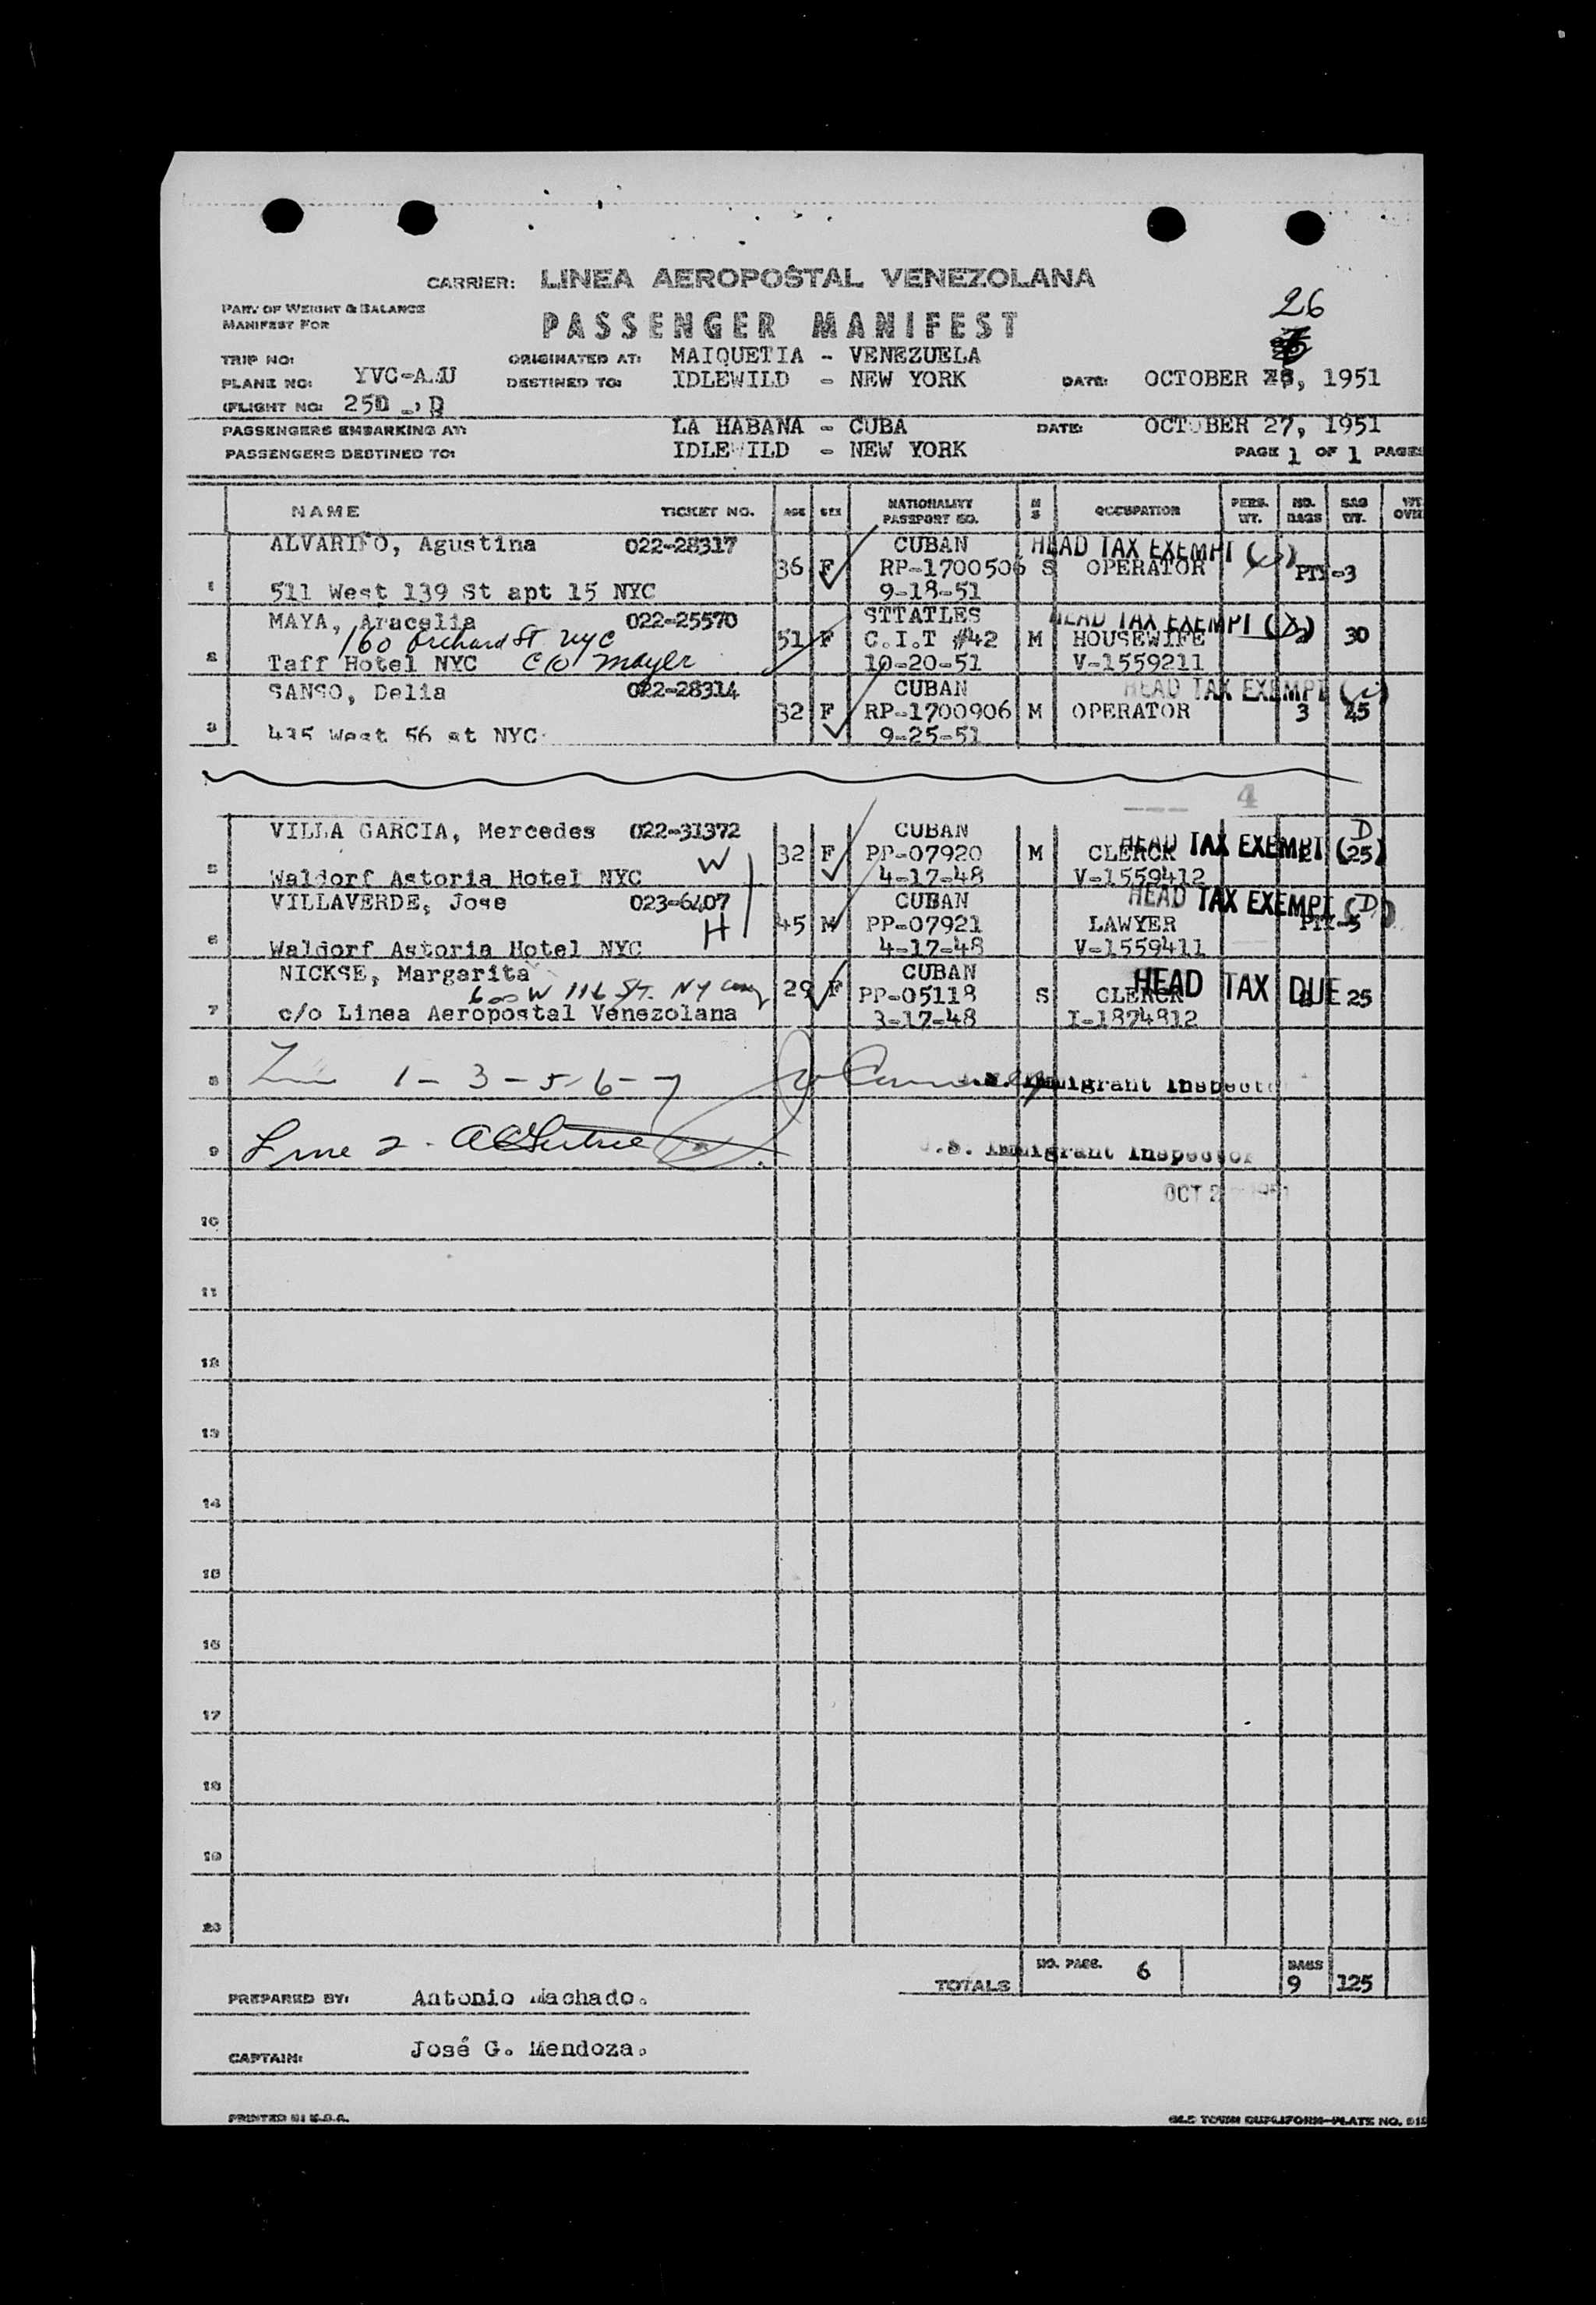 CARRIER: LINEA AEROPOSTAL VENEZOLANA
PART OF WEIGHT & BALANCE
MANIFEST FOR
PASSENGER MANIFEST
26
TRIP NO:
ORIGINATED AT: MAIQUETIA - VENEZUELA
PLANE NO: DESTINED TO: IDLEWILD - NEW YORK DATE: OCTOBER , 1951
FLIGHT NO:
PASSENGERS EMBARKING AT: LA HABANA - CUBA DATE: OCTOBER 27, 1951
PASSENGERS DESTINED TO: IDLEWILD - NEW YORK PAGE 1 OF 1 PAGES
NAME TICKET NO. AGE SEX NATIONALITY PASSPORT NO. M S OCCUPATION PERS. WT. NO. BAGS BAG WT. WT OVER
ALVARIÑO, Agustina 022-28317 CUBAN HEAD TAX EXEMPT
1 36 F RP-1700506 S OPERATOR PTY-3
511 West 139 St apt 15 NYC 9-18-51
MAYA, Aracelia 022-25570 STTATLES HEAD TAX EXEMPT
160 Orchard St NYC 51 F C.I.T #42 M HOUSEWIFE 30
2 Taff Hotel NYC C/O Mayer 10-20-51 V-1559211
SANSO, Delia 022-28314 CUBAN HEAD TAX EXEMPT
32 F RP-1700906 M OPERATOR 3 45
3 435 West 56 st NYC 9-25-51
4
VILLA GARCIA, Mercedes 022-31372 CUBAN HEAD TAX EXEMPT (D)
W 32 F PP-07920 M CLERCK 25
5 Waldorf Astoria Hotel NYC 4-17-48 V-1559412
VILLAVERDE, Jose 023-6407 CUBAN HEAD TAX EXEMPT (D)
H 45 M PP-07921 LAWYER PTY-5
6 Waldorf Astoria Hotel NYC 4-17-48 V-1559411
NICKSE, Margarita CUBAN HEAD TAX DUE
600 W 116 ST. NY 29 F PP-05118 S CLERCK 25
7 c/o Linea Aeropostal Venezolana 3-17-48 I-1874812
8 1 - 3 - 5 - 6 - 7 Immigrant Inspector
9 Line 2 - U.S. Immigrant Inspector
OCT 1951
10
11
12
13
14
15
16
17
18
19
20
TOTALS NO. PASS. 6 BAGS 9 125
PREPARED BY: Antonio Machado.
CAPTAIN: José G. Mendoza.
PRINTED IN U.S.A.
OLD TOWN DUPLIFORM-PLATE NO.